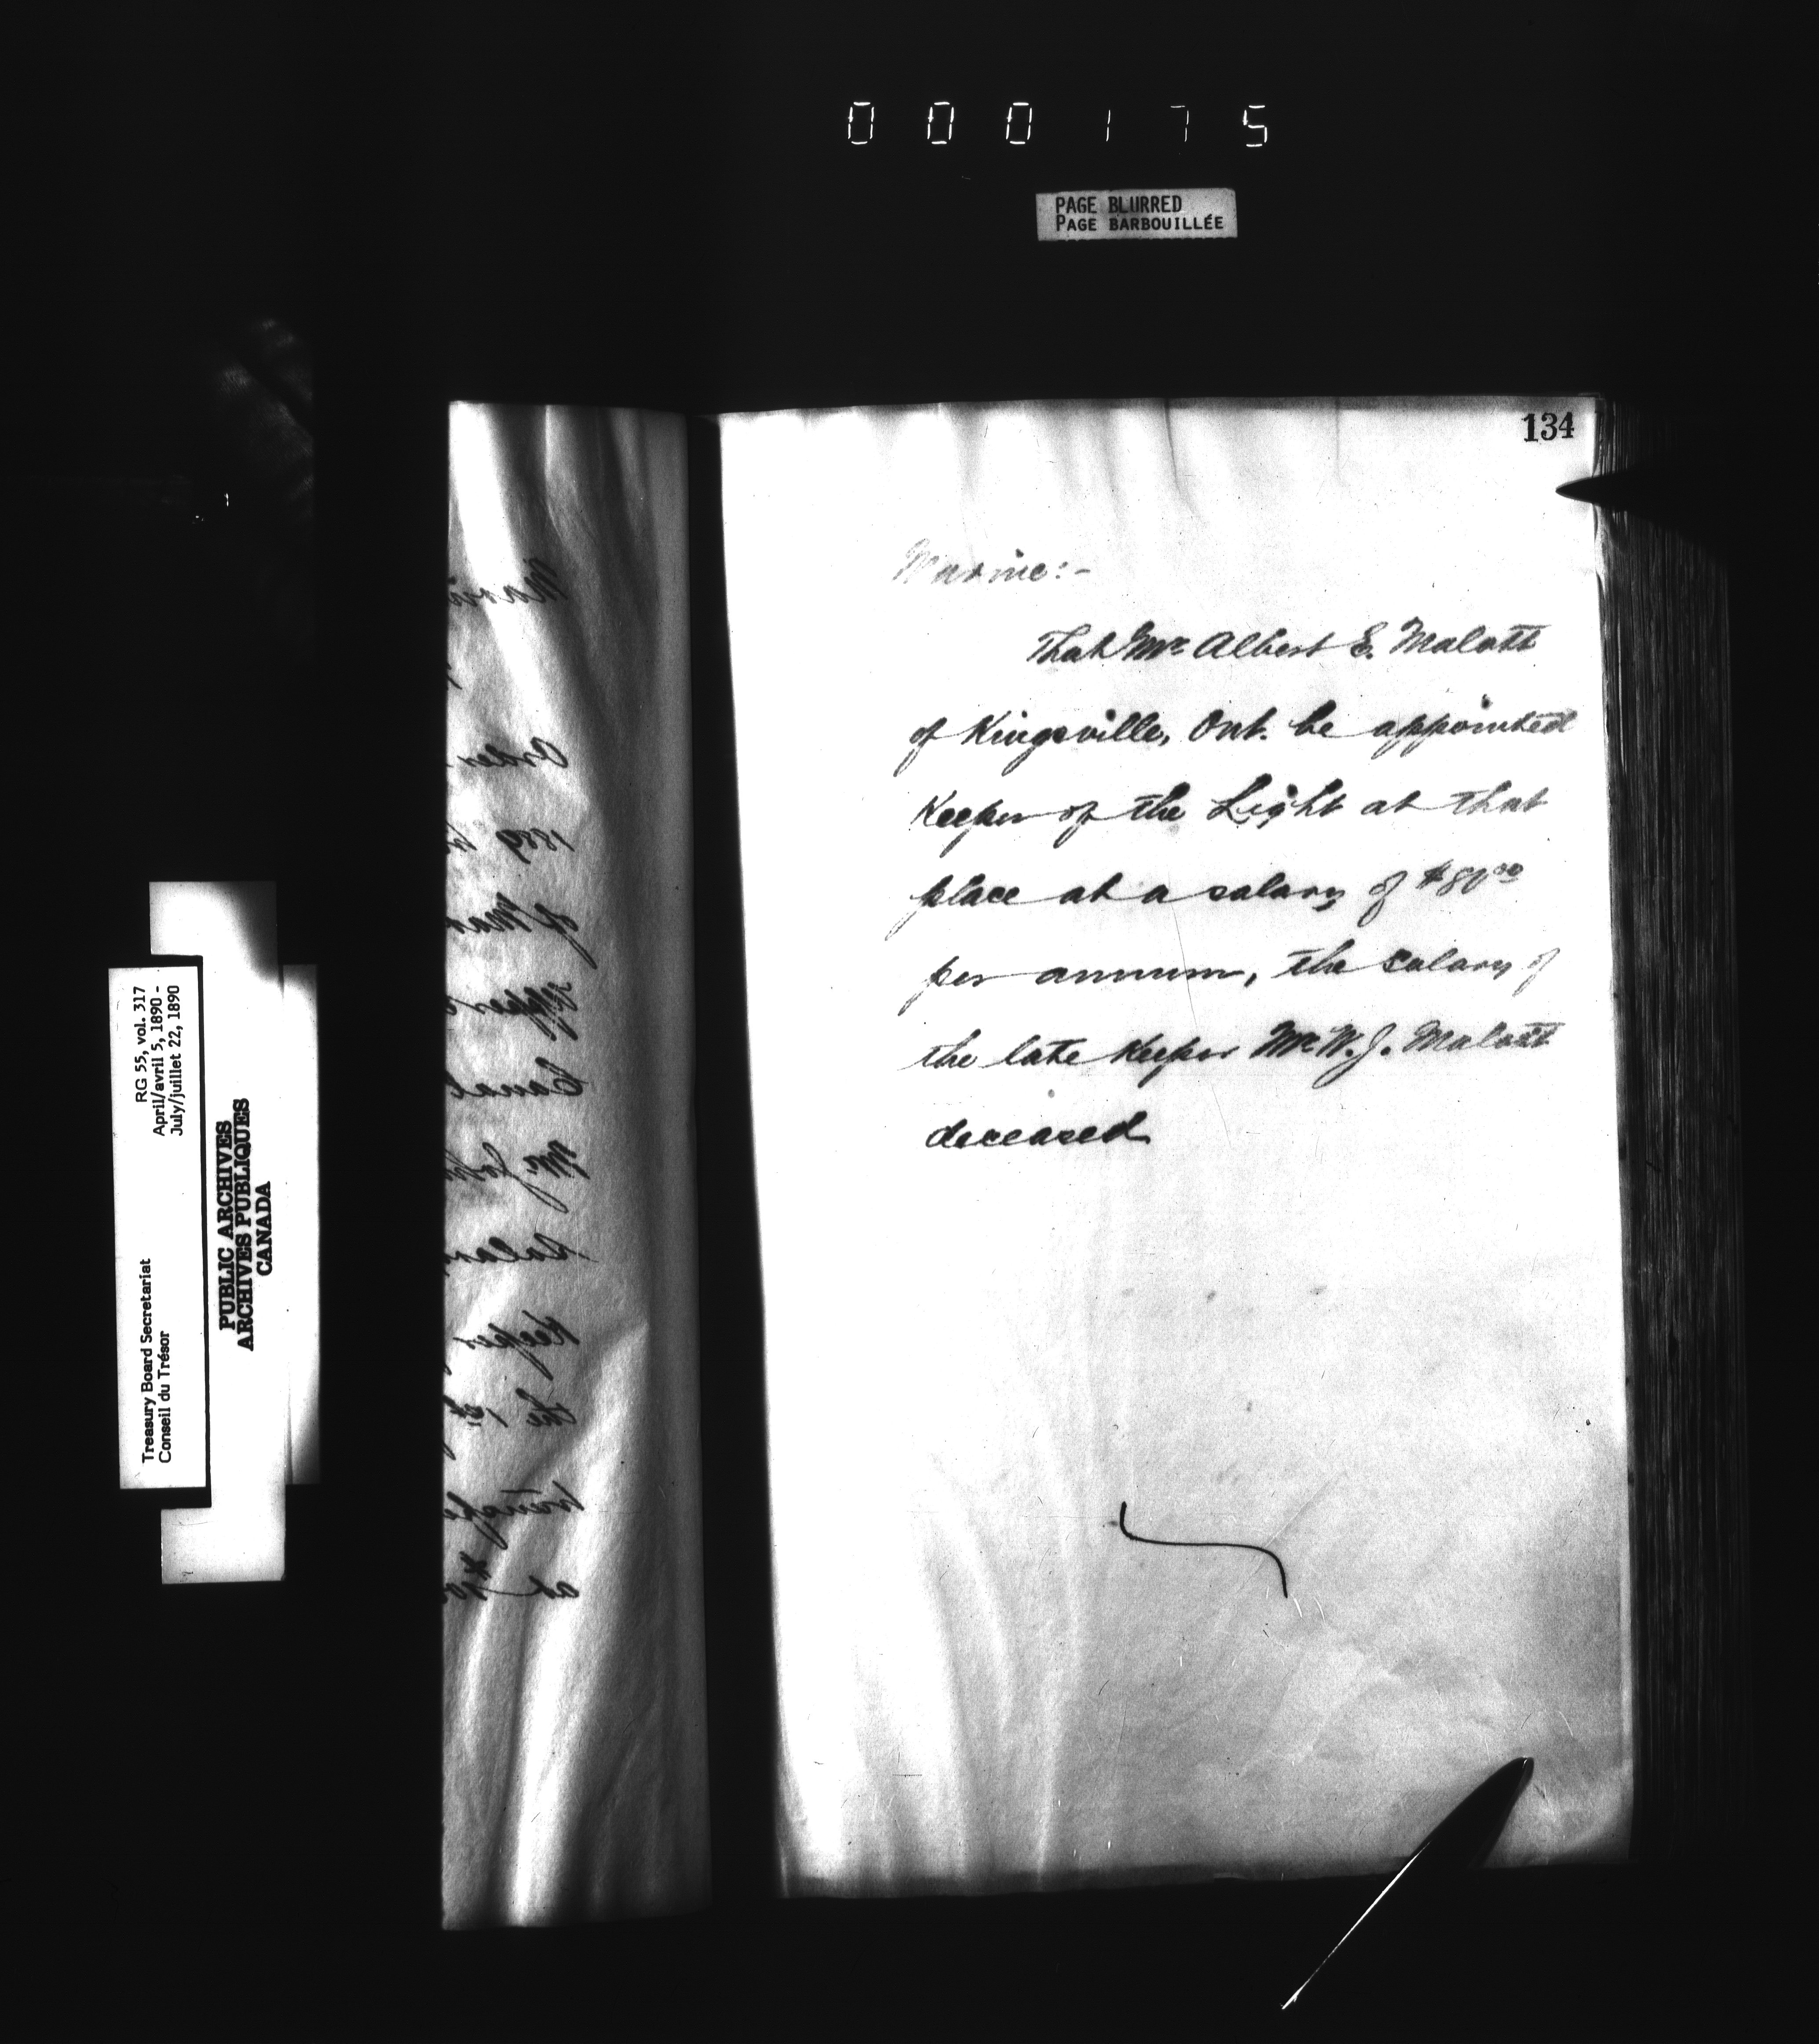 000175
PAGE BLURRED
PAGE BARBOUILLÉE
134
Marine:-
That Mr Albert E. Malott
of Kingsville, Ont. be appointed
Keeper of the Light at that
place at a salary of
per annum, the salary of
the late Keeper Mr W. J. Malott
deceased
RG 55, vol. 317
April/avril 5, 1890 -
July/juillet 22, 1890
Treasury Board Secretariat
Conseil du Trésor
PUBLIC ARCHIVES
ARCHIVES PUBLIQUES
CANADA
Order
1889
of
Canal
Mr John
Keeper
the 1st
at